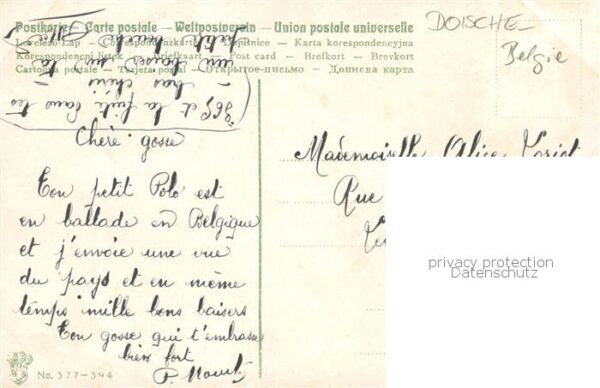 Postkarte — Carte postale — Weltpostverein — Union postale universelle
Levelező-Lap — Correspondenzkarte — Dopisnice — Karta korespondencyjna
Korespondenční lístek — Briefkaart — Post card — Brefkort — Brevkort
Cartolina postale — Tarjeta postal — Открытое письмо — Дописна карта
DOISCHE —
Belgie
Chère gosse
Ton petit Polo est
en ballade en Belgique
et j'envoie une vue
du pays et en même
temps mille bons baisers
Ton gosse qui t'embrasse
bien fort
P.
Mademoiselle Alice
Rue
privacy protection
Datenschutz
No. 377-394
et la suite dans tes
bras chéri
un baiser sur ta
petite bouche